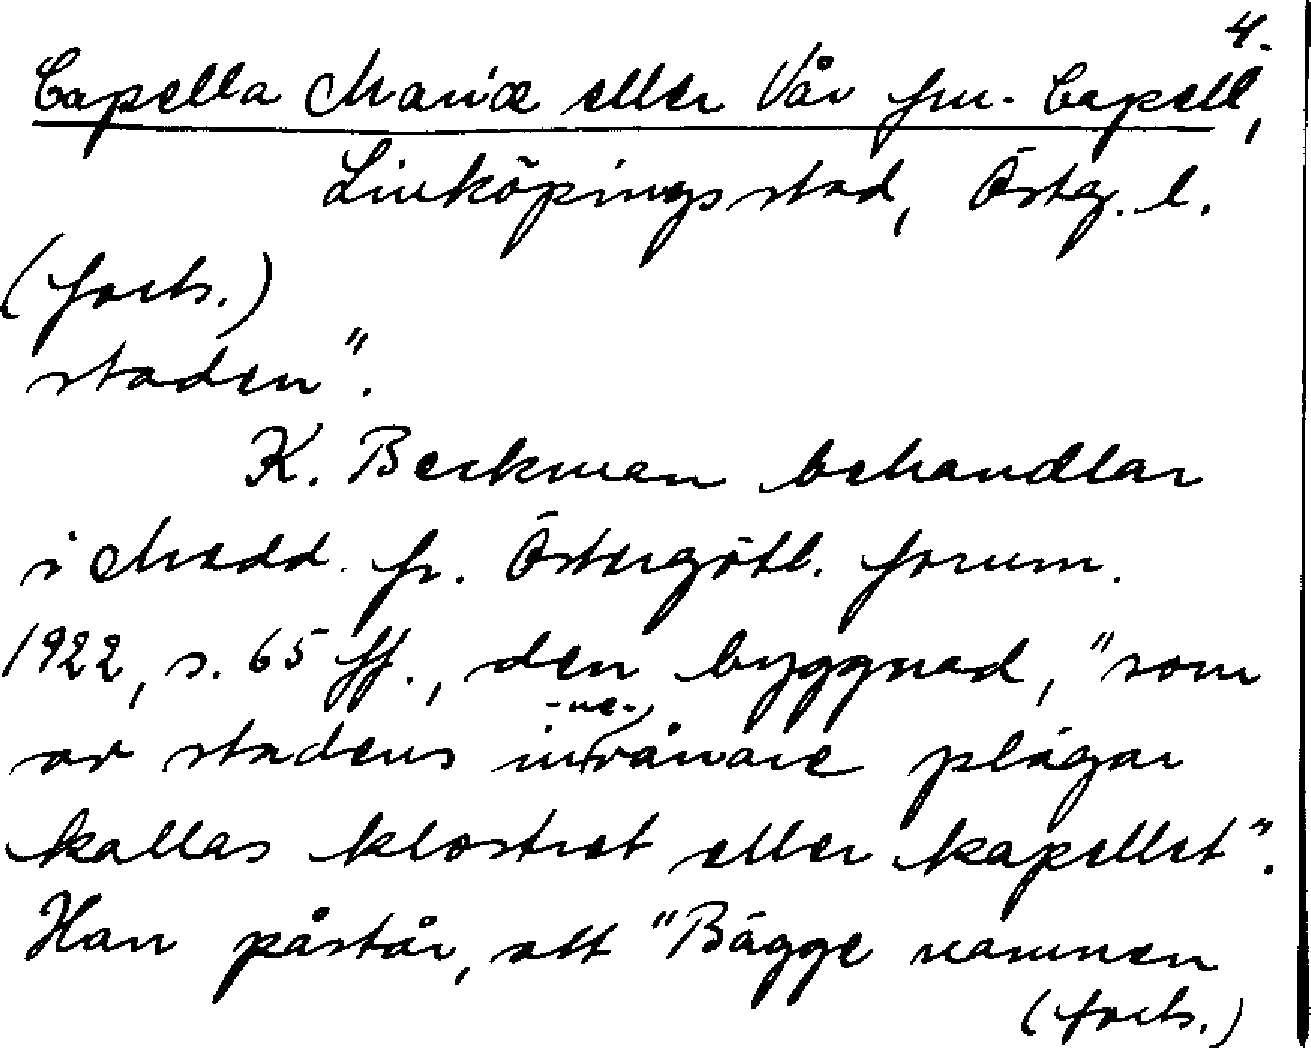 4.
Capella Mariæ eller Vår fru Capell,
Linköpings stad, Östg. l.
(forts.)
staden".
K. Beckman behandlar
i Medd. fr. Östergötl. fornm.
1922, s. 65 ff., den byggnad, "som
av stadens innevånare plägar
kallas klostret eller kapellet".
Han påstår, att "Bägge namnen
(forts.)